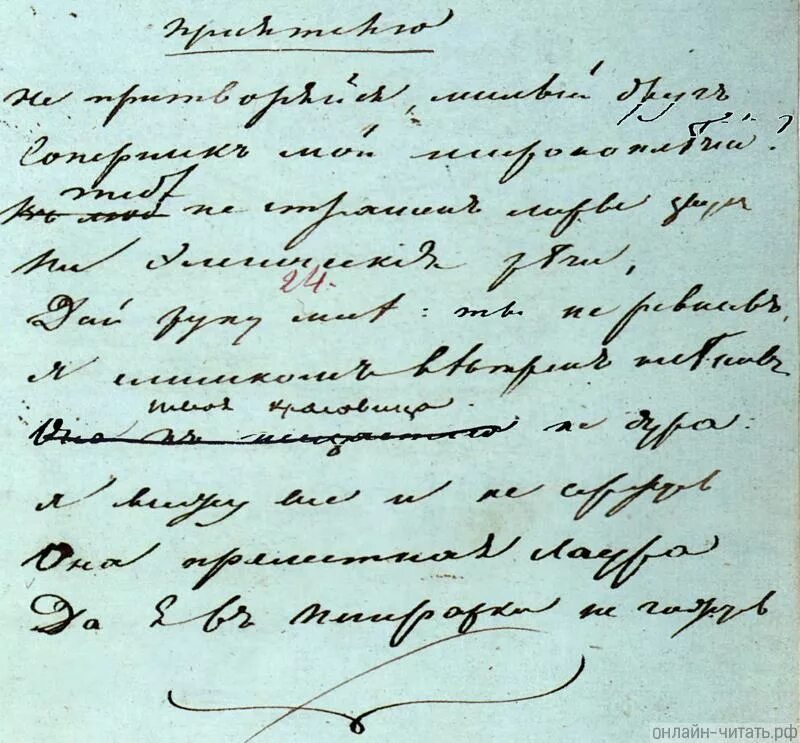 Приятелю
Не притворяйся, милый другъ
Соперникъ мой широкоплѣчій!
тебѣ
не страшенъ лиры звукъ
Ни Элегическія рѣчи,
24.
Дай руку мнѣ: ты не ревнивъ,
Я слишкомъ вѣтренъ и лѣнивъ
твоя красавица
Она къ несчастию не дура:
Я вижу все и не сержусь
Она прелестная Лаура
Да я въ Петрарки не гожусь
онлайн-читать.рф